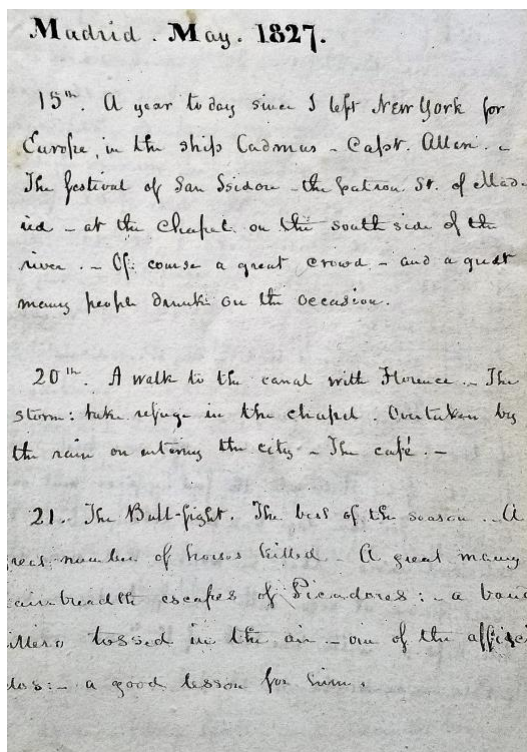 Madrid. May. 1827.
15th. A year to day since I left New York for
Europe, in the ship Cadmus - Capt. Allen. -
The festival of San Isidore - the patron St. of Mad-
rid - at the chapel on the south side of the
river. - Of course a great crowd - and a great
many people drunk on the occasion.
20th. A walk to the canal with Florence. - The
storm: take refuge in the chapel. Overtaken by
the rain on entering the city - The café. -
21. The Bull-fight. The best of the season. A
reat number of horses killed - A great many
air-breadth escapes of Picadores: - a band
illero tossed in the air - one of the affici
dos: - a good lesson for him.